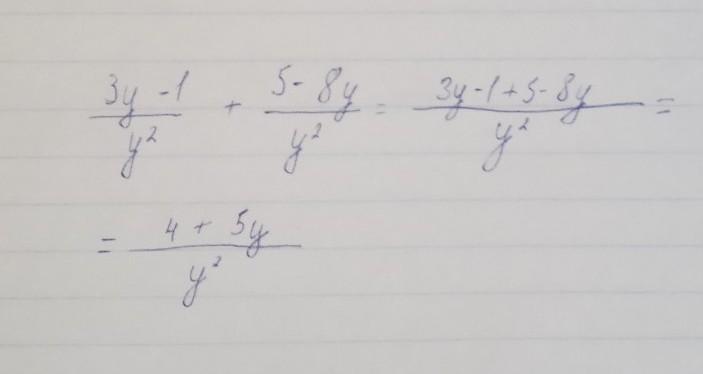 (3y - 1)/y² + (5 - 8y)/y² = (3y - 1 + 5 - 8y)/y² =
= (4 + 5y)/y²